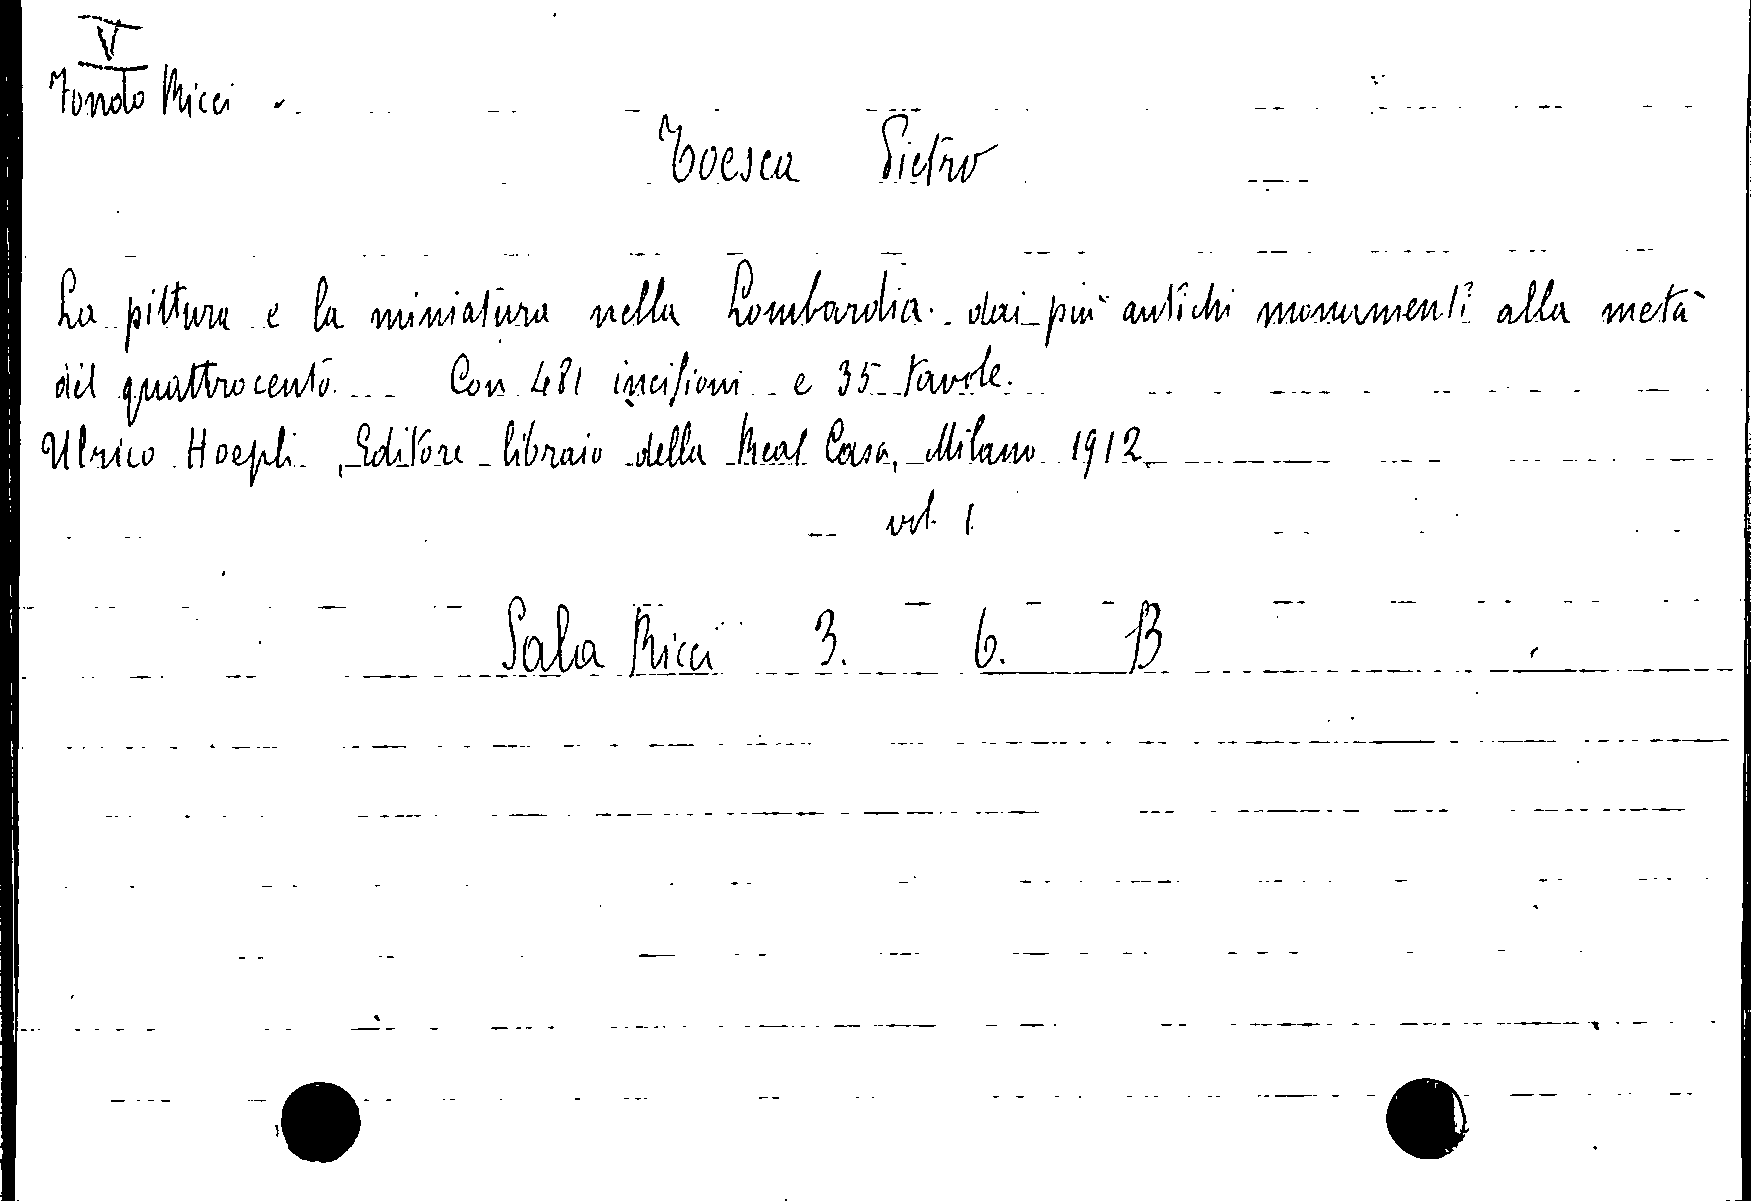 V
Fondo Ricci .
Toesca Pietro
La pittura e la miniatura nella Lombardia. dai più antichi monumenti alla metà
del quattrocento. Con 481 incisioni e 35 tavole.
Ulrico Hoepli, Editore libraio della Real Casa, Milano 1912.
vol. 1
Sala Ricci 3. 6. B